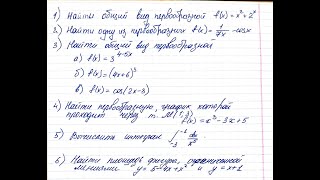 1) Найти общий вид первообразной f(x)=x³+2ˣ
2) Найти одну из первообразных f(x)=1/√x - cosx
3) Найти общий вид первообразной
а) f(x)=3^(4-5x)
б) f(x)=(4x+6)³
в) f(x)=cos(2x-3)
4) Найти первообразную, график которой
проходит через т. M(1;3)
f(x)=x³-3x+5
5) Вычислить интеграл ∫₋₃⁻¹ dx/x²
6) Найти площадь фигуры,
линиями y=5-4x+x² и y=x+1